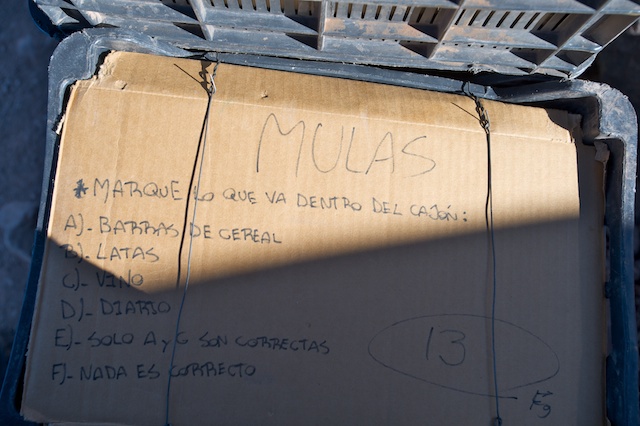 MULAS
* MARQUE LO QUE VA DENTRO DEL CAJÓN:
A)- BARRAS DE CEREAL
B)- LATAS
C)- VINO
D)- DIARIO
E)- SOLO A y C SON CORRECTAS
F)- NADA ES CORRECTO
13
Kg